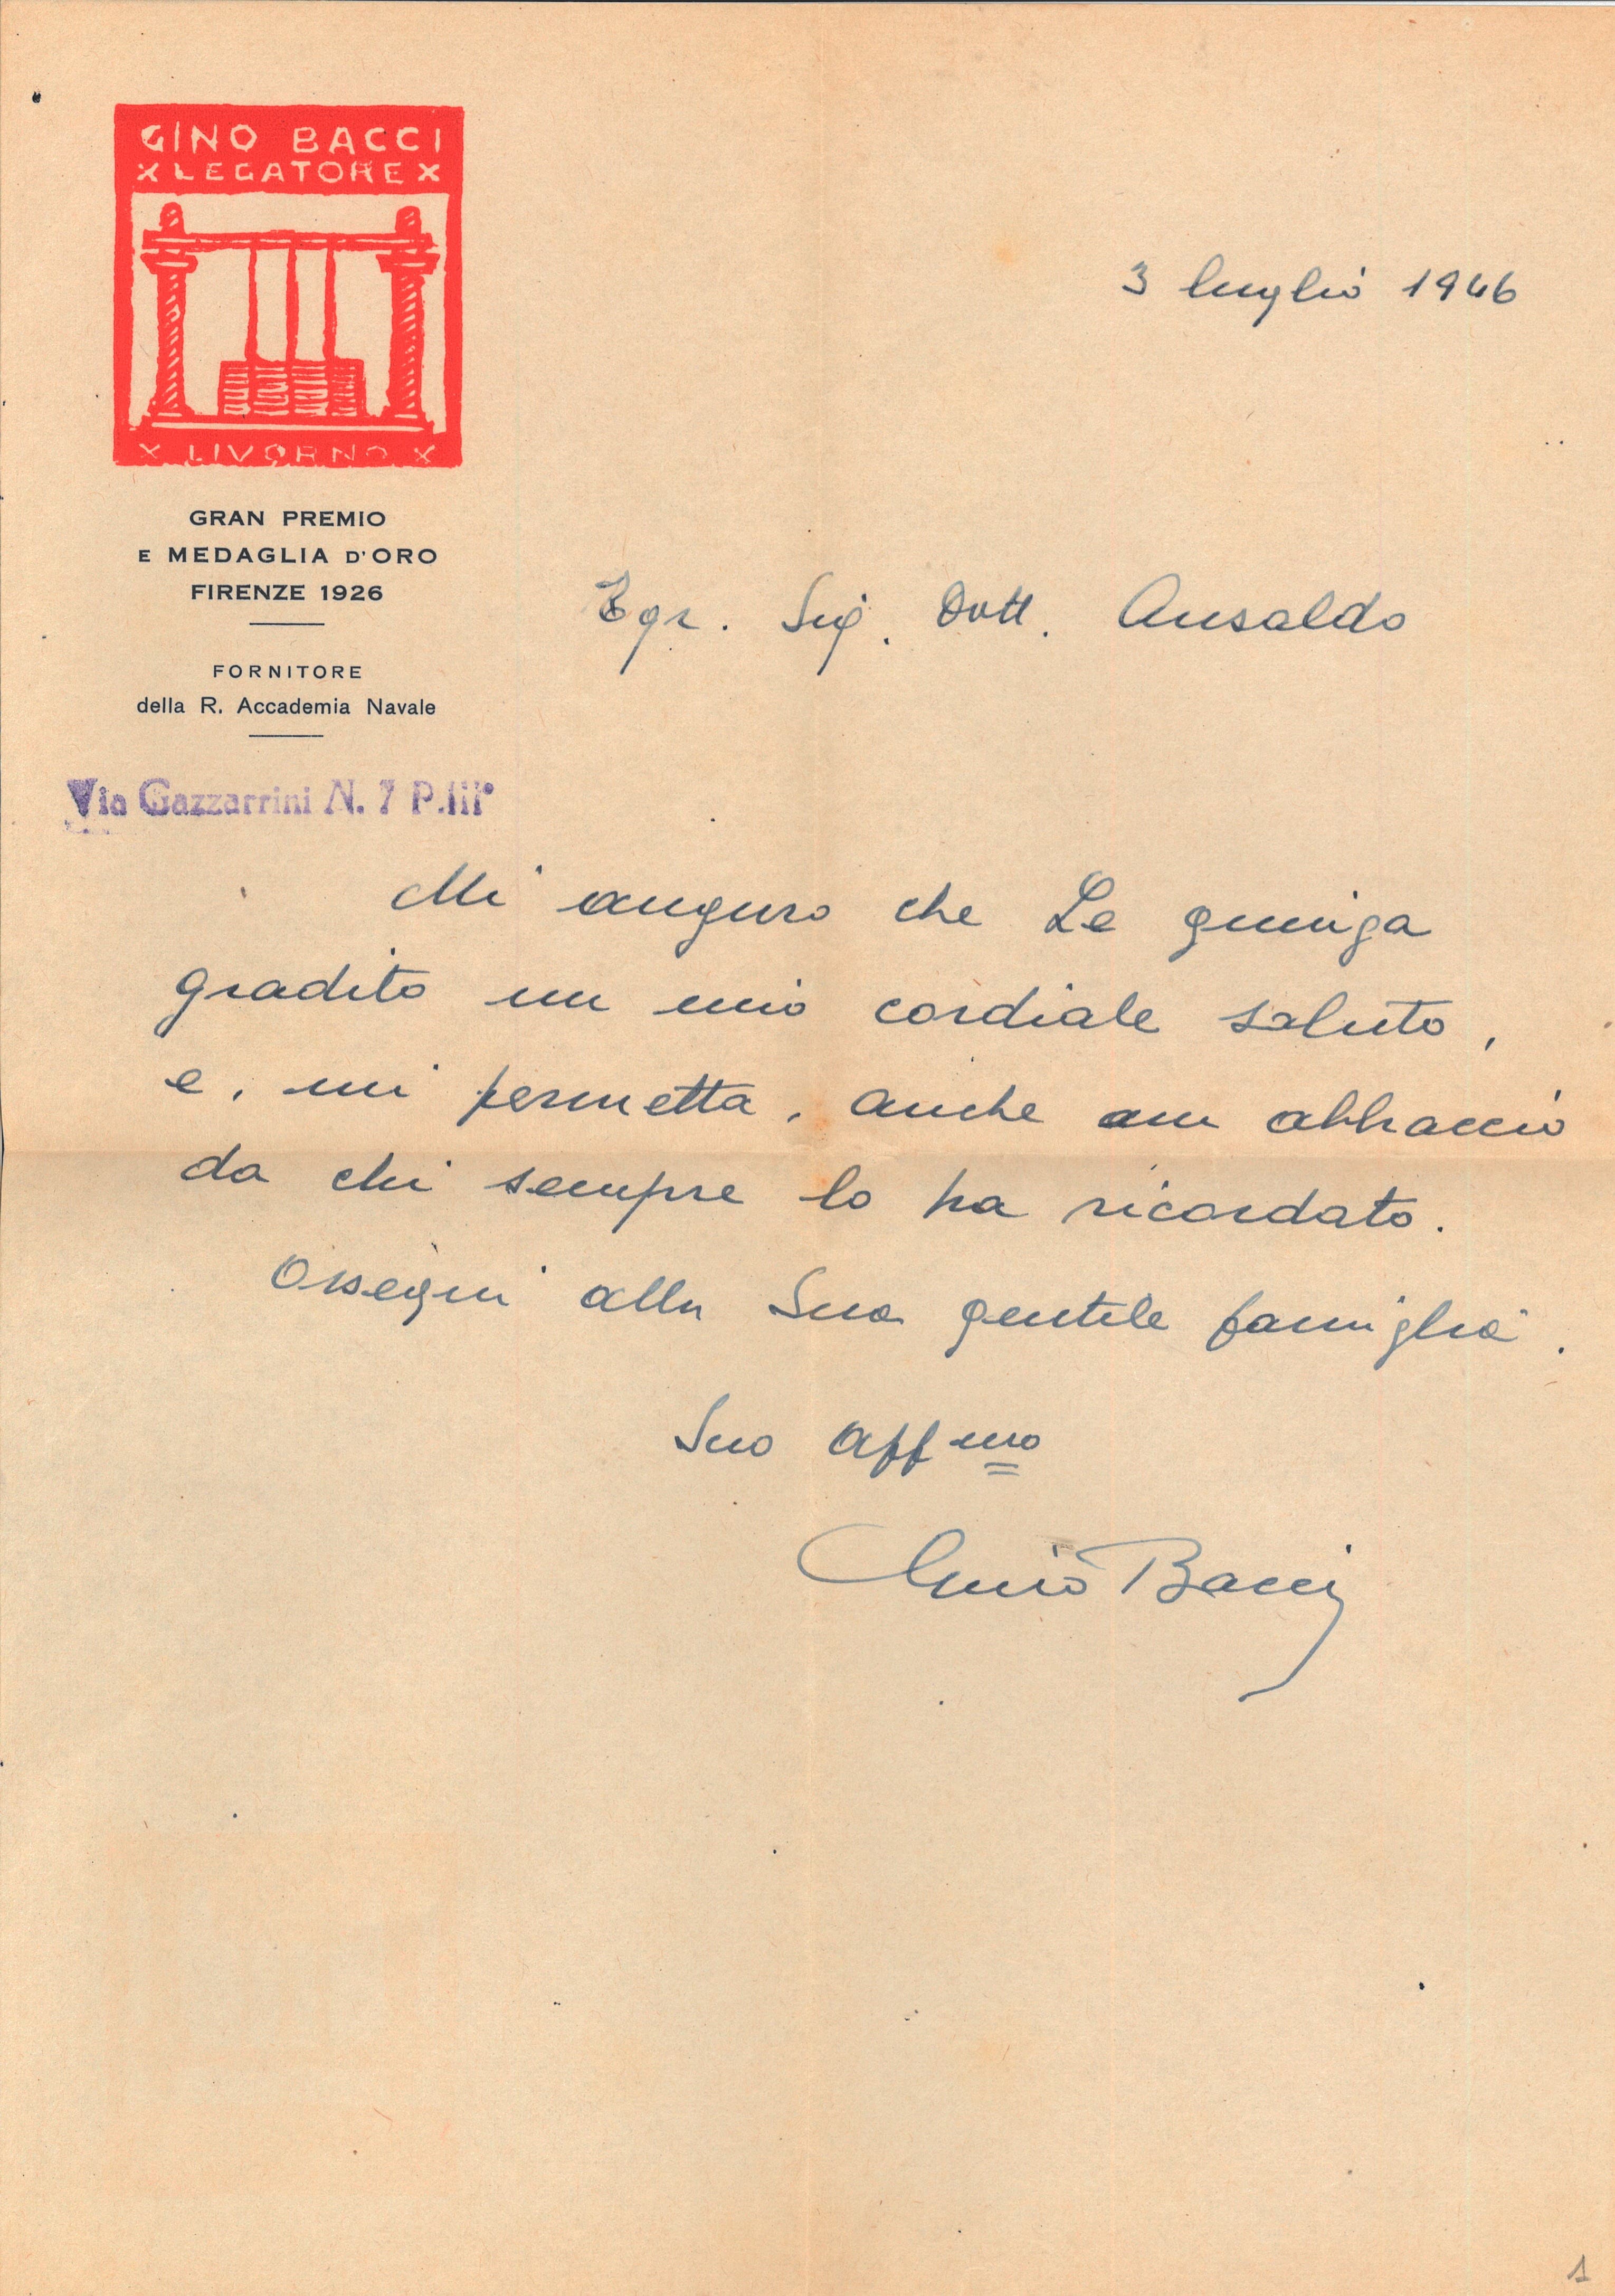 GINO BACCI
x LEGATORE x
x LIVORNO x
GRAN PREMIO
E MEDAGLIA D'ORO
FIRENZE 1926
FORNITORE
della R. Accademia Navale
Via Gazzarrini N. 7 P. III°
3 luglio 1946
Egr. Sig. Dott. Ansaldo
Mi auguro che Le giunga
gradito un mio cordiale saluto,
e, mi permetta, anche un abbraccio
da chi sempre lo ha ricordato.
Ossequi alla Sua gentile famiglia.
Suo affmo
Gino Bacci
1